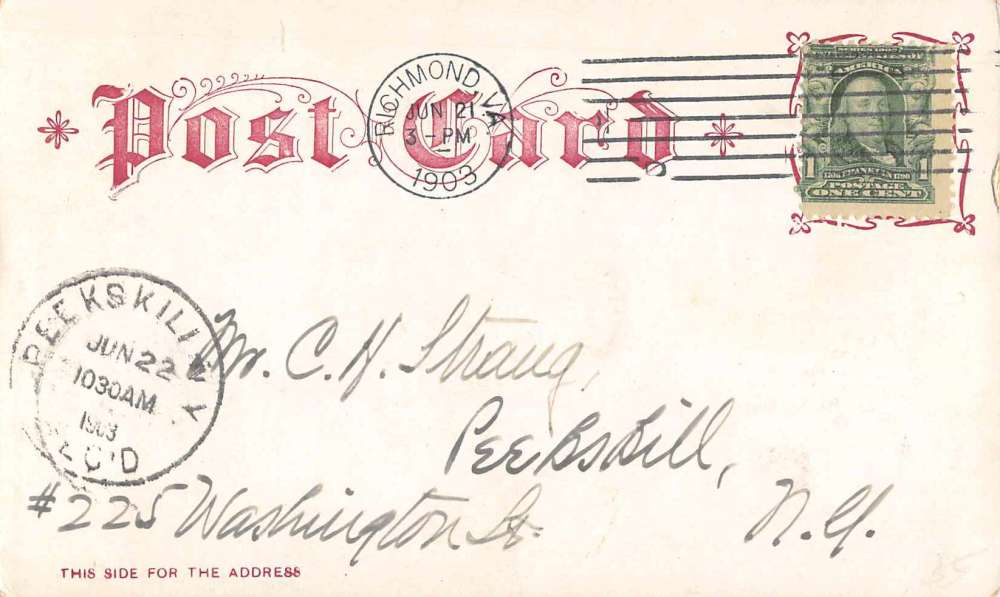 Post Card
RICHMOND, VA
JUN 21
3 - PM
1903
SERIES 1902
AMERICA
1706 FRANKLIN 1790
POSTAGE
1 ONE CENT 1
PEEKSKILL N Y
JUN 22
1030AM
1903
REC'D
Mr. C. H. Strang,
Peekskill,
#225 Washington St. N.Y.
THIS SIDE FOR THE ADDRESS